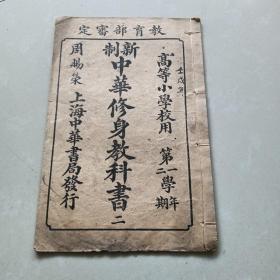 教育部審定
高等小學校用 第一學年 第二學期
新制
中華修身教科書 二
上海中華書局發行